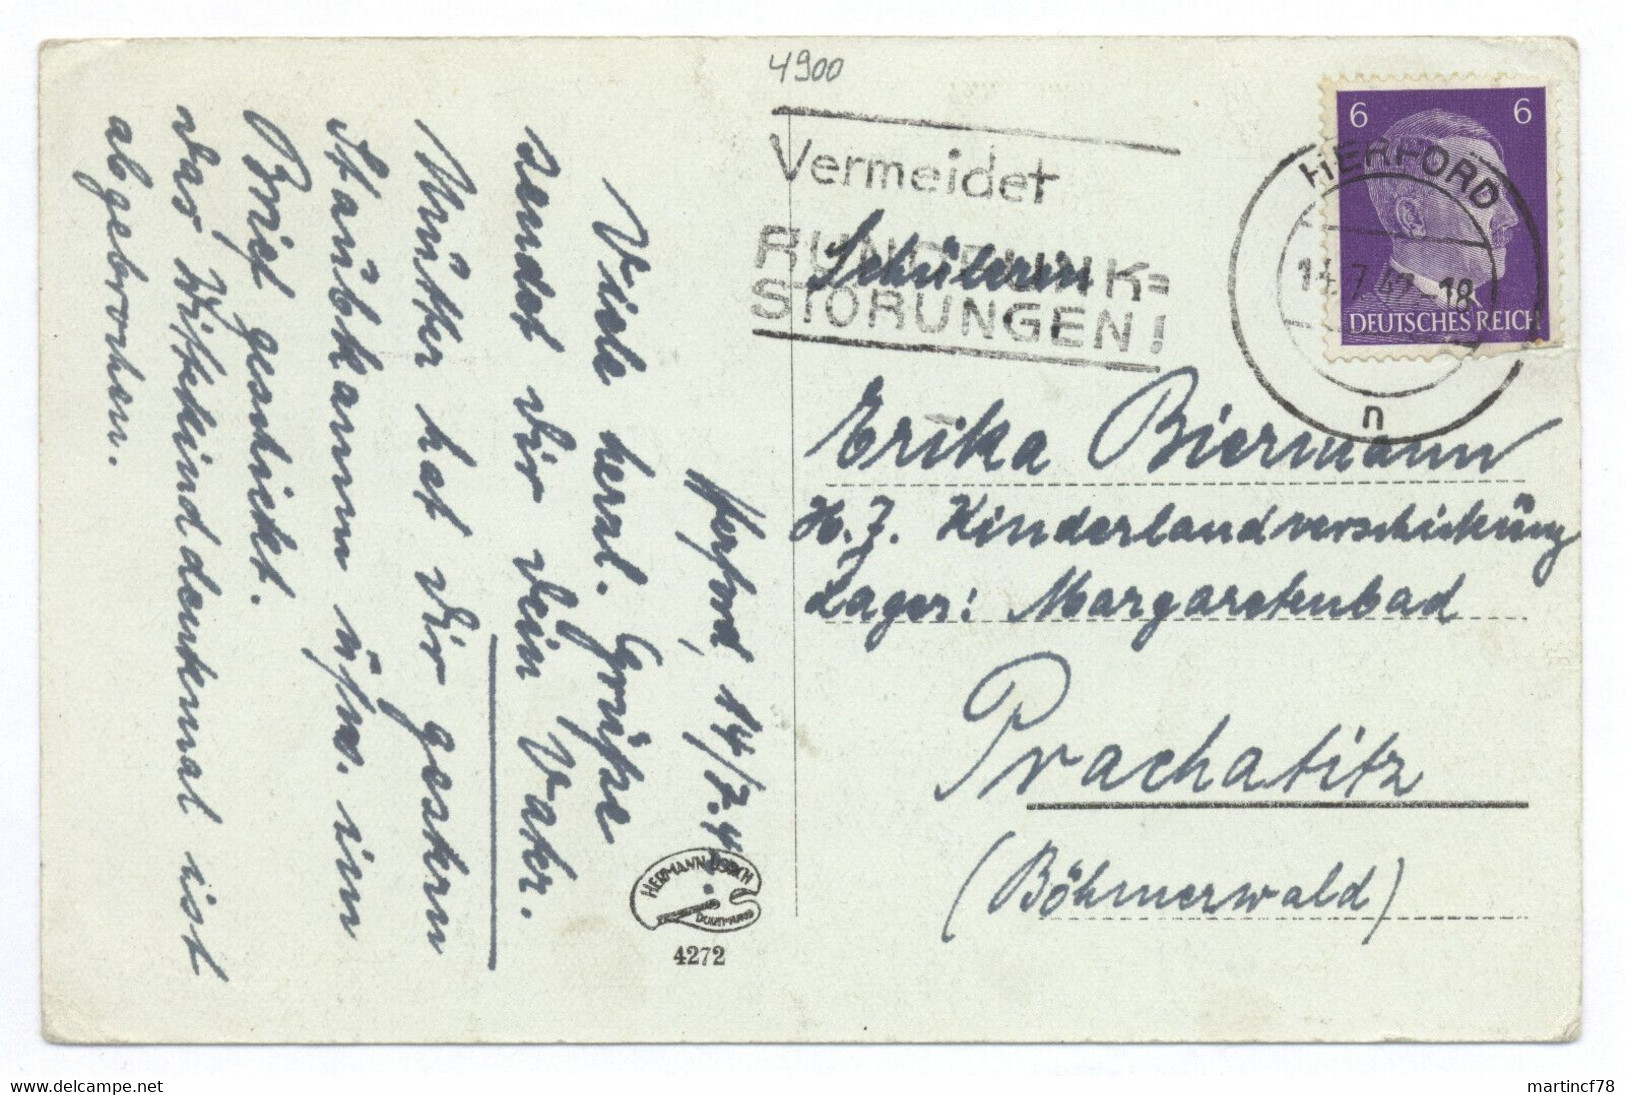 4900
Vermeidet
RUNDFUNK=
STÖRUNGEN!
6 6
DEUTSCHES REICH
HERFORD
14.7.42-18
n
Schülerin
Erika Biermann
H.J. Kinderlandverschickung
Lager: Margaretenbad
Prachatitz
(Böhmerwald)
Herford, 14/7.42
Viele herzl. Grüße
sendet Dir Dein Vater.
Mutter hat Dir gestern
Staubkamm usw. im
Brief geschickt.
Das Wittekinddenkmal ist
abgebrochen.
HERMANN LORCH
DORTMUND
4272
delcampe.net
martincf78